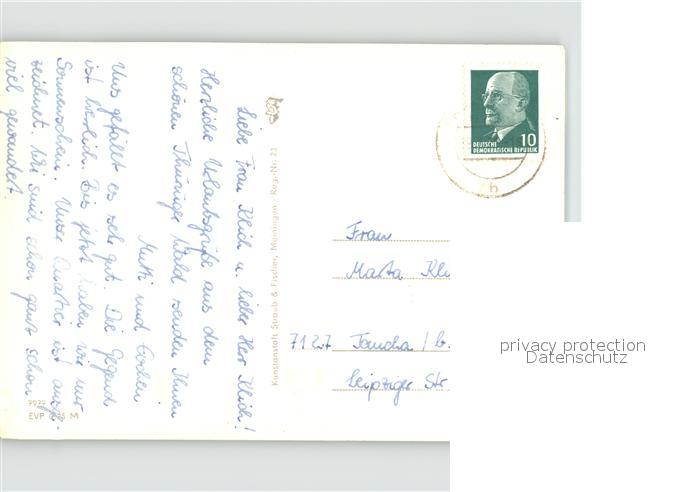 Liebe Frau Klich u. lieber Herr Klich!
Herzliche Urlaubsgrüße aus dem
schönen Thüringer Wald senden Ihnen
Mutti und
Uns gefällt es sehr gut. Die Gegend
ist herrlich. Bis jetzt haben wir nur
Sonnenschein. Unser Quartier ist ausge-
zeichnet. Wir sind schon ganz schön
viel gewandert.
7927
EVP M
Kunstanstalt Straub & Fischer, Meiningen Reg.-Nr. 22
10
DEUTSCHE
DEMOKRATISCHE REPUBLIK
Frau
Marta Kli
7127 Taucha / b.
Leipziger Str
privacy protection
Datenschutz